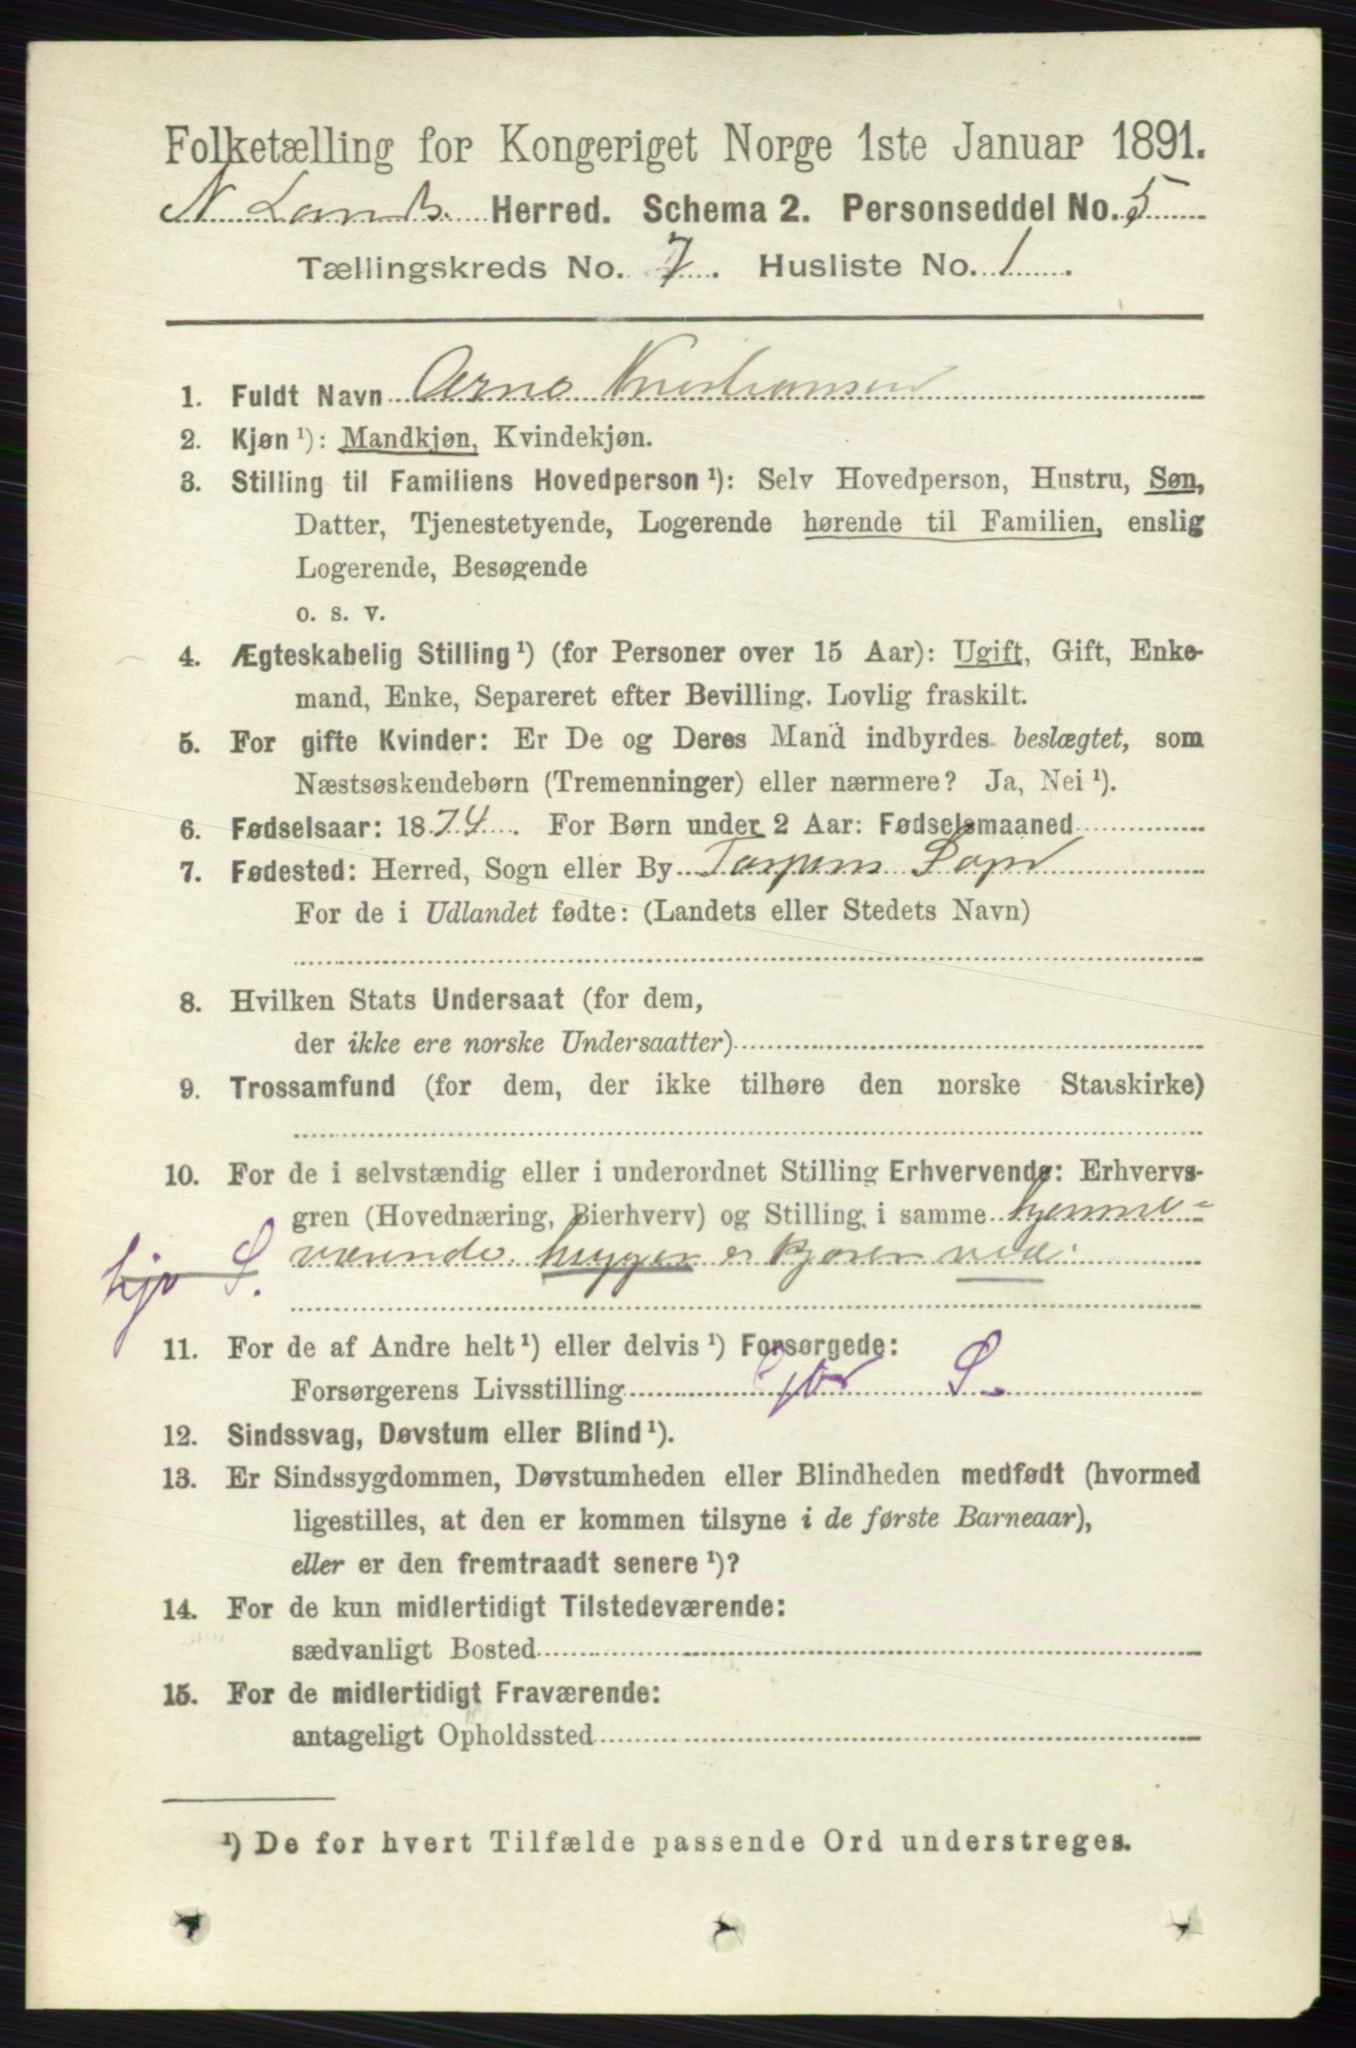 Folketælling for Kongeriget Norge 1ste Januar 1891.
N. Lands Herred. Schema 2. Personseddel No. 5
Tællingskreds No. 7. Husliste No. 1.
1. Fuldt Navn Arne Kristiansen
2. Kjøn ¹): Mandkjøn, Kvindekjøn.
3. Stilling til Familiens Hovedperson ¹): Selv Hovedperson, Hustru, Søn,
Datter, Tjenestetyende, Logerende hørende til Familien, enslig
Logerende, Besøgende
o. s. v.
4. Ægteskabelig Stilling ¹) (for Personer over 15 Aar): Ugift, Gift, Enke-
mand, Enke, Separeret efter Bevilling. Lovlig fraskilt.
5. For gifte Kvinder: Er De og Deres Mand indbyrdes beslægtet, som
Næstsøskendebørn (Tremenninger) eller nærmere? Ja, Nei ¹).
6. Fødselsaar: 1874. For Børn under 2 Aar: Fødselsmaaned
7. Fødested: Herred, Sogn eller By Torpens Sogn
For de i Udlandet fødte: (Landets eller Stedets Navn)
8. Hvilken Stats Undersaat (for dem,
der ikke ere norske Undersaatter)
9. Trossamfund (for dem, der ikke tilhøre den norske Statskirke)
10. For de i selvstændig eller i underordnet Stilling Erhvervende: Erhvervs-
gren (Hovednæring, Bierhverv) og Stilling i samme hjemme-
S. værende hugger o kjører ved.
11. For de af Andre helt ¹) eller delvis ¹) Forsørgede:
Forsørgerens Livsstilling S.
12. Sindssvag, Døvstum eller Blind ¹).
13. Er Sindssygdommen, Døvstumheden eller Blindheden medfødt (hvormed
ligestilles, at den er kommen tilsyne i de første Barneaar),
eller er den fremtraadt senere ¹)?
14. For de kun midlertidigt Tilstedeværende:
sædvanligt Bosted
15. For de midlertidigt Fraværende:
antageligt Opholdssted
¹) De for hvert Tilfælde passende Ord understreges.